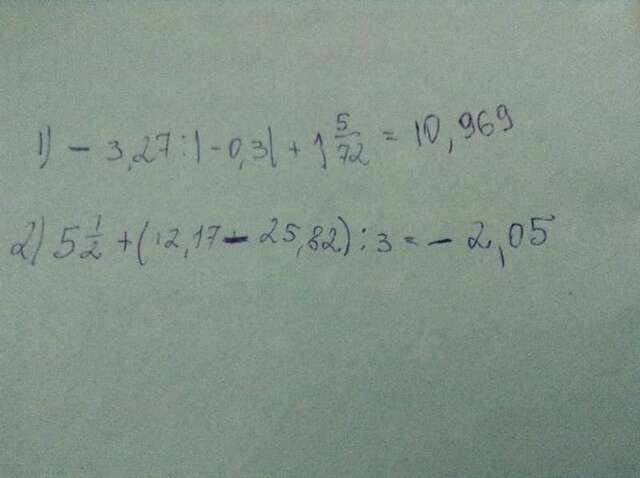 1) - 3,27 : |-0,3| + 1 5/72 = 10,969
2) 5 1/2 + (12,17 - 25,82) : 3 = - 2,05